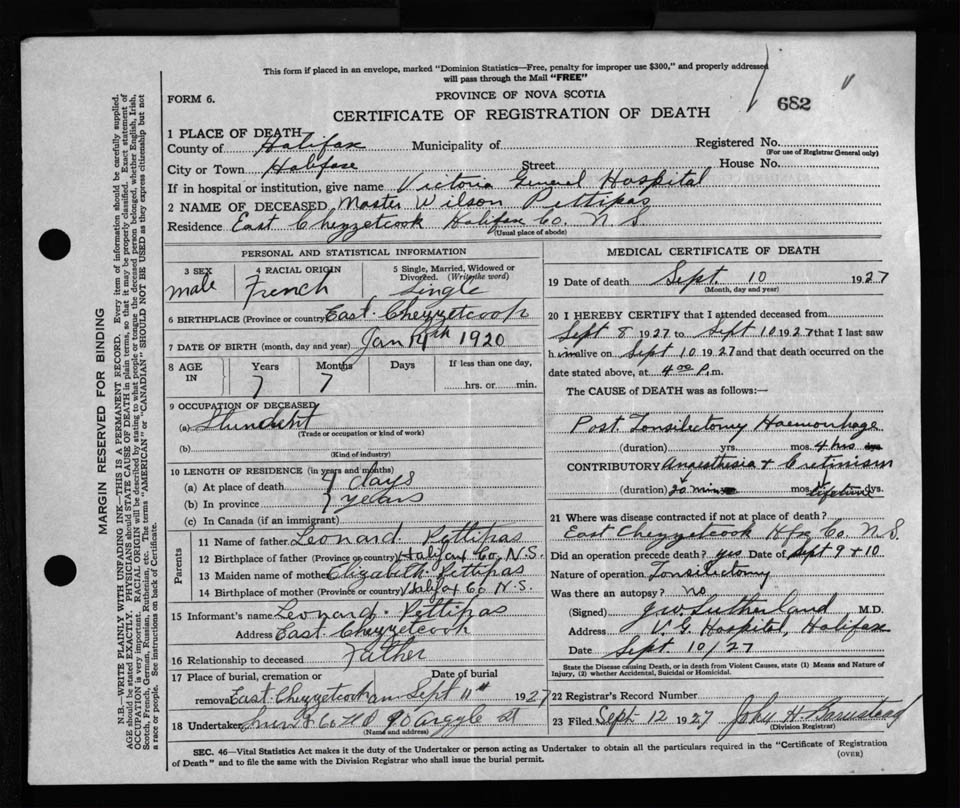 This form if placed in an envelope, marked "Dominion Statistics—Free, penalty for improper use $300," and properly addressed
will pass through the Mail "FREE"
FORM 6.
PROVINCE OF NOVA SCOTIA
682
CERTIFICATE OF REGISTRATION OF DEATH
1 PLACE OF DEATH
County of Halifax Municipality of Registered No.
(For use of Registrar General only)
City or Town Halifax Street House No.
If in hospital or institution, give name Victoria General Hospital
2 NAME OF DECEASED Master Wilson Pettipas
Residence East Chezzetcook Halifax Co. N.S
(Usual place of abode)
MARGIN RESERVED FOR BINDING
N.B.—WRITE PLAINLY WITH UNFADING INK—THIS IS A PERMANENT RECORD. Every item of information should be carefully supplied.
AGE should be stated EXACTLY. PHYSICIANS should STATE CAUSE OF DEATH in plain terms, so that it may be properly classified. Exact statement of
OCCUPATION is very important. RACIAL ORIGIN will be described by stating to what people or tongue the deceased person belonged, whether English, Irish,
Scotch, French, German, Russian, Ruthenian, etc. The terms "AMERICAN" or "CANADIAN" SHOULD NOT BE USED as they express citizenship but not
a race or people. See instructions on back of Certificate.
PERSONAL AND STATISTICAL INFORMATION
3 SEX
male
4 RACIAL ORIGIN
French
5 Single, Married, Widowed or
Divorced. (Write the word)
Single
6 BIRTHPLACE (Province or country) East Chezzetcook
7 DATE OF BIRTH (month, day and year) Jan 1920
8 AGE IN
Years Months Days If less than one day,
7 7 hrs. or min.
9 OCCUPATION OF DECEASED
(a) Stundent
(Trade or occupation or kind of work)
(b)
(Kind of industry)
10 LENGTH OF RESIDENCE (in years and months)
(a) At place of death days
(b) In province 7 years
(c) In Canada (if an immigrant)
Parents
11 Name of father Leonard Pettipas
12 Birthplace of father (Province or country) Halifax Co, N.S.
13 Maiden name of mother Elizabeth Pettipas
14 Birthplace of mother (Province or country) Halifax Co N.S.
15 Informant's name Leonard Pettipas
Address East Chezzetcook
16 Relationship to deceased Father
17 Place of burial, cremation or Date of burial
removal East Chezzetcook Sept 11th 1927
18 Undertaker Snow & Co Ltd 90 Argyle St
(Name and address)
MEDICAL CERTIFICATE OF DEATH
19 Date of death Sept. 10 1927
(Month, day and year)
20 I HEREBY CERTIFY that I attended deceased from
Sept 8 1927 to Sept 10 1927 that I last saw
him alive on Sept 10 1927 and that death occurred on the
date stated above, at 4 00 P.m.
The CAUSE of DEATH was as follows:—
Post Tonsilectomy Haemorrhage
(duration) yrs. mos. 4 hrs
CONTRIBUTORY Anaesthesia + Cretinism
(duration) 20 min mos. lifetime dys.
21 Where was disease contracted if not at place of death?
East Chezzetcook Hfx Co N.S.
Did an operation precede death? yes Date of Sept 9 + 10
Nature of operation Tonsilectomy
Was there an autopsy? no
(Signed) J W Sutherland M.D.
Address V.G. Hospital, Halifax
Date Sept 10/27
State the Disease causing Death, or in death from Violent Causes, state (1) Means and Nature of
Injury, (2) whether Accidental, Suicidal or Homicidal.
22 Registrar's Record Number
23 Filed Sept 12 1927 John H
(Division Registrar)
SEC. 46—Vital Statistics Act makes it the duty of the Undertaker or person acting as Undertaker to obtain all the particulars required in the "Certificate of Registration
of Death" and to file the same with the Division Registrar who shall issue the burial permit.
(OVER)